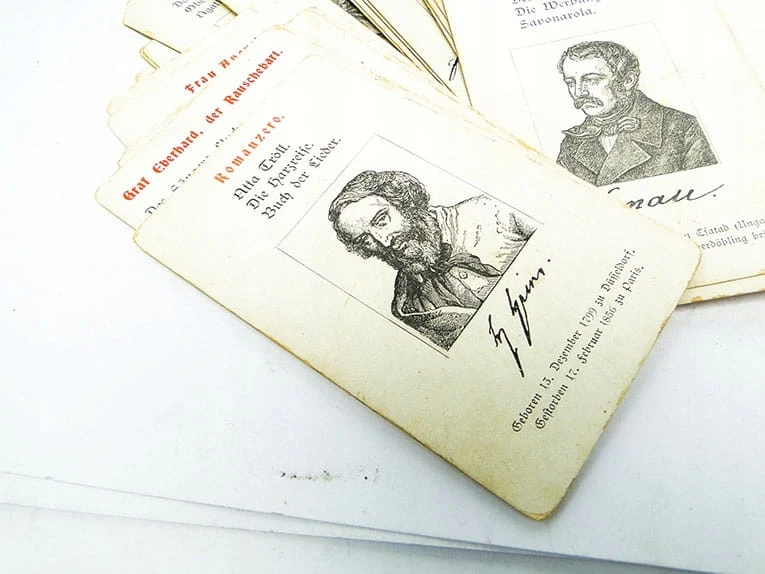 Romanzero.
Atta Troll.
Die Harzreise.
Buch der Lieder.
H. Heine.
Geboren 13. Dezember 1799 zu Düsseldorf.
Gestorben 17. Februar 1856 zu Paris.
Graf Eberhard, der Rauschebart.
Frau
Die Werbung
Savonarola.
nau.
Csatad (Unga
erdöbling bei